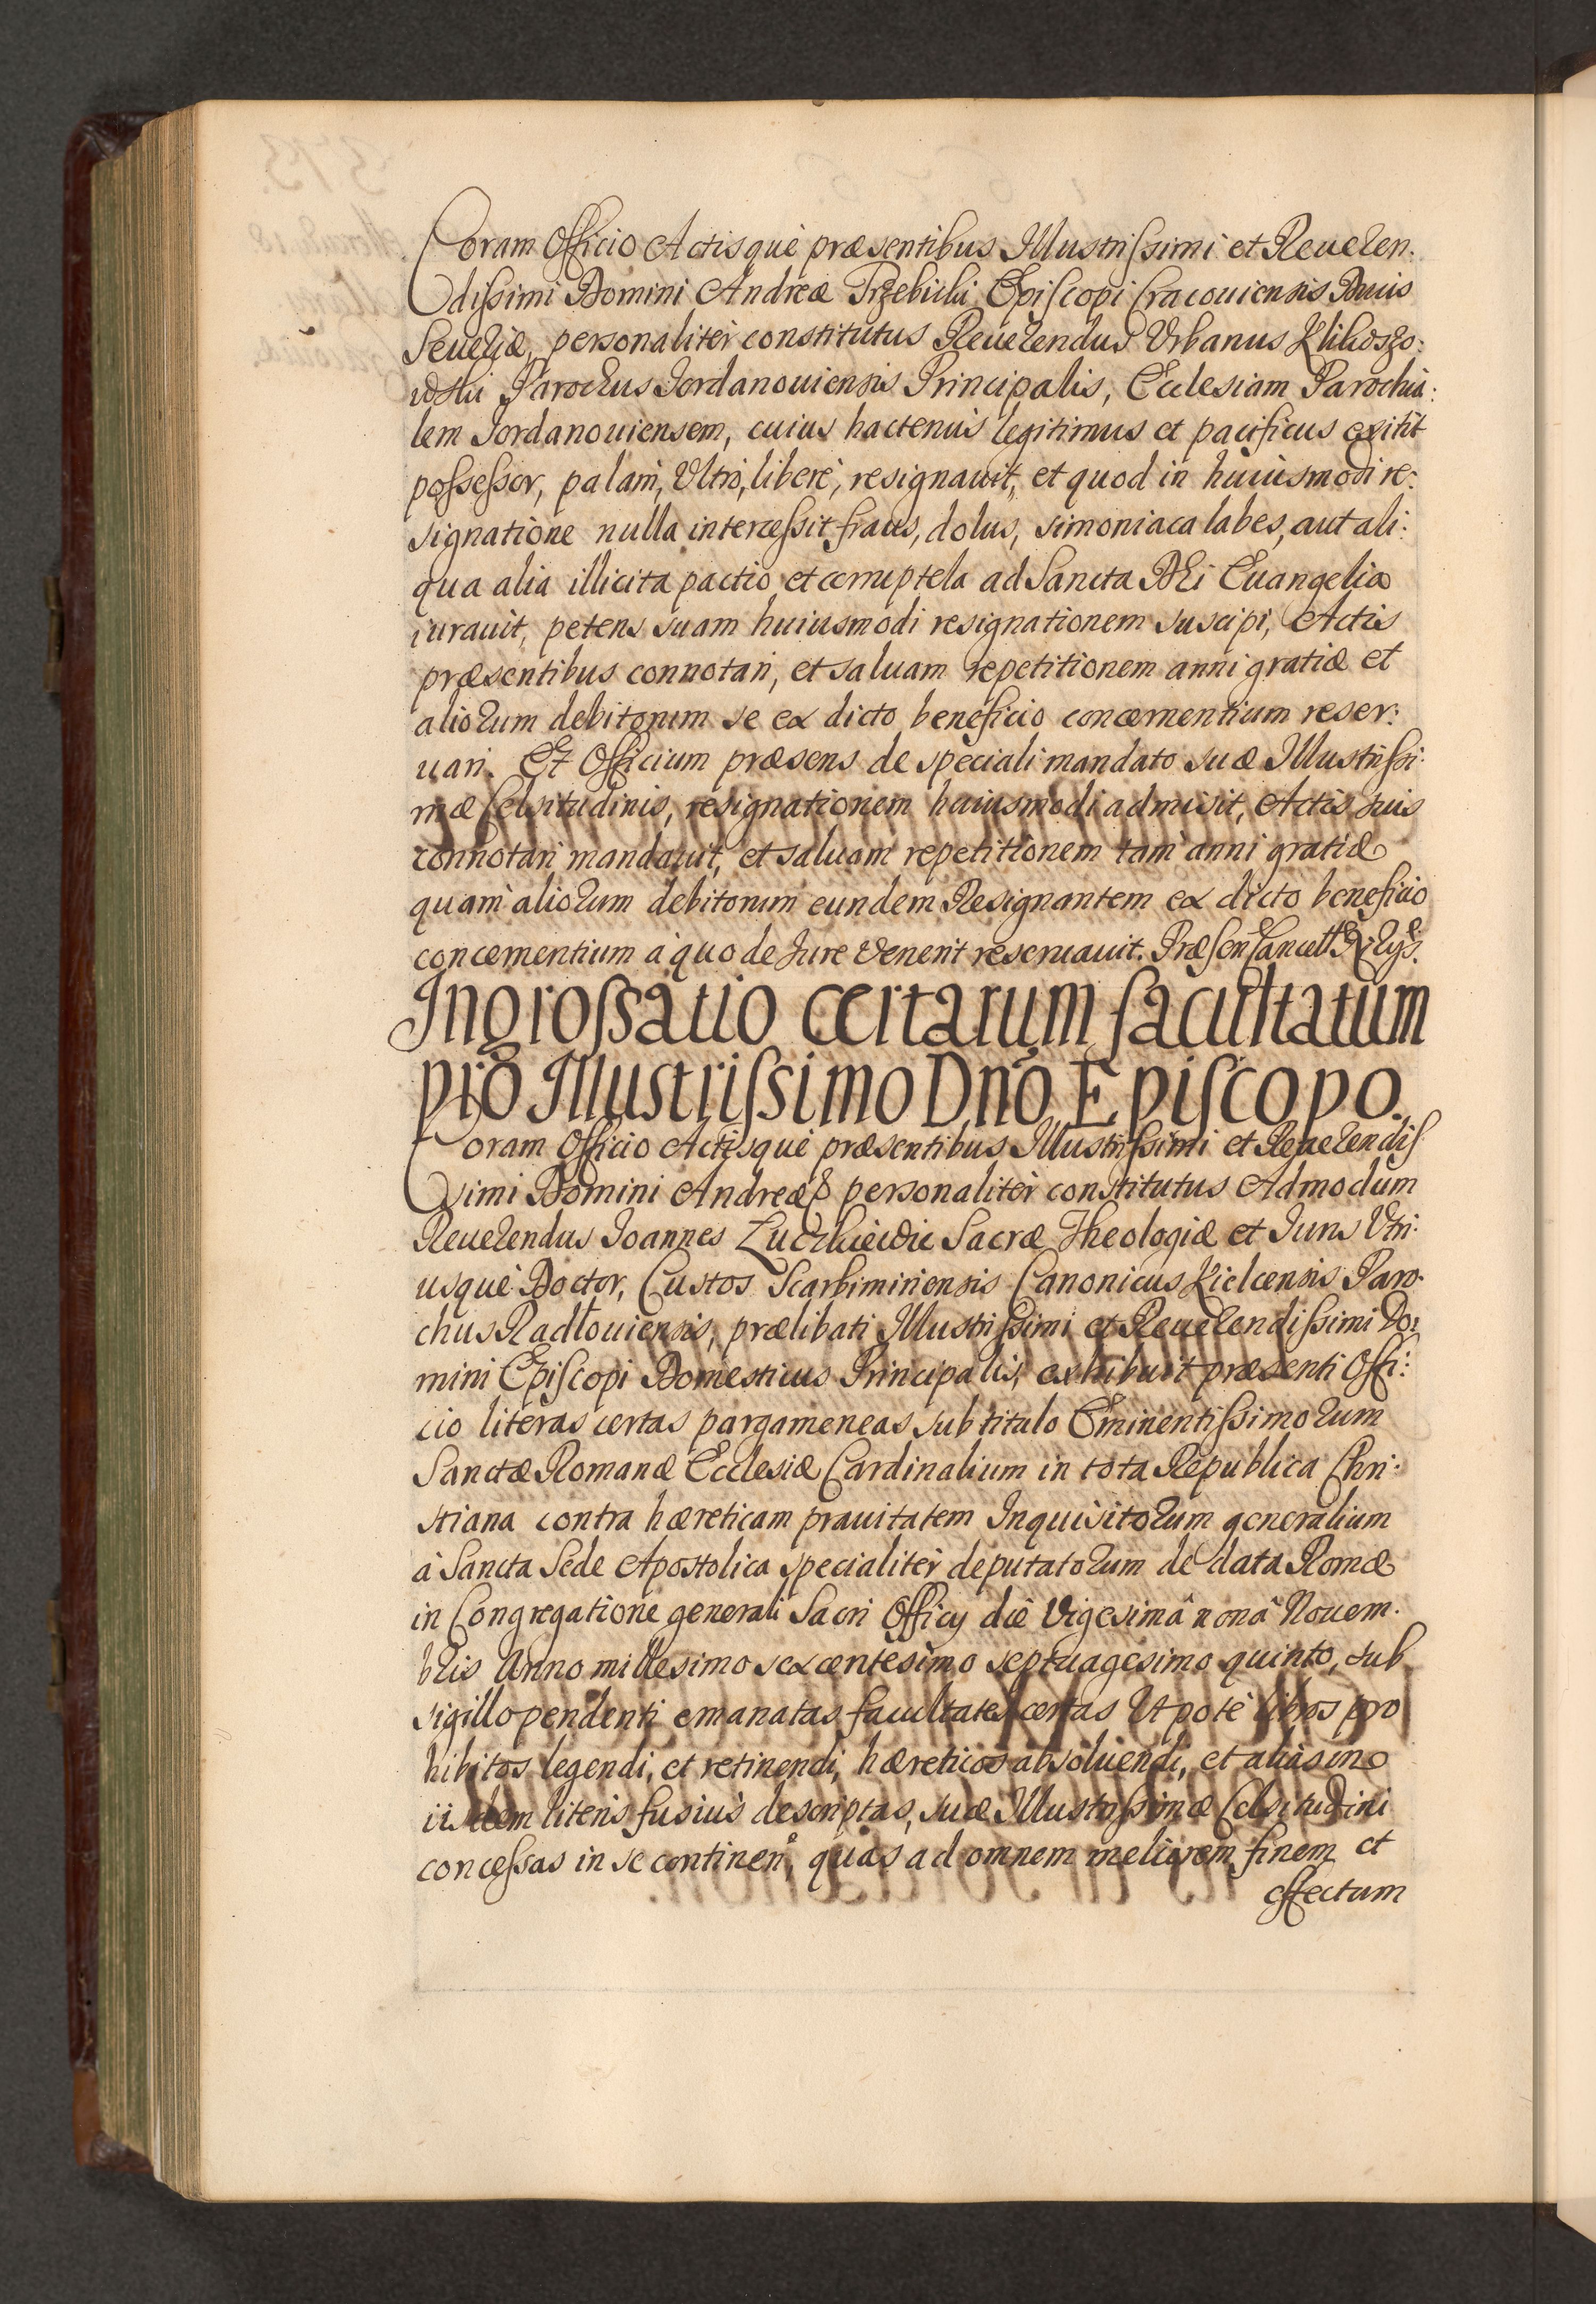 Coram Officio Actisquè præsentibus Illustrissimi et Reueren:
dissimi Domini Andreæ Trzebicki Episcopi Cracouiensis Ducis
Seueriæ, personalitèr constitutus Reuerendus Vrbanus Klikoszo:
wski Parochus Jordanouiensis Principalis, Ecclesiam Parochia:
lem Jordanouiensem, cuius hactenùs legitimus et pacificus extitit
possessor, palàm, Vltrò, liberè, resignauit, et quod in huiusmodi re:
signatione nulla intercessit fraus, dolus, simoniaca labes, aut ali:
qua alia illicita pactio et corruptela ad Sancta DEi Euangelia
iurauit, petens suam huiusmodi resignationem suscipi, Actis
præsentibus connotari, et saluam repetitionem anni gratiæ et
aliorum debitorum se ex dicto beneficio concernentium reser:
uari. Et Officium præsens de speciali mandato suæ Illustrissi:
mæ Celsitudinis, resignationem huiusmodi admisit, Actis suis
connotari mandauit, et saluam repetitionem tam anni gratiæ
quàm aliorum debitorum eundem Resignantem ex dicto beneficio
concernentium à quo de Jure Venerit reseruauit. Præsen
Ingrossatio certarum facultatum
pro Illustrissimo Dño Episcopo.
Coram Officio Actisquè præsentibus Illustrissimi et Reuerendis
simi Domini Andreæ personalitèr constitutus Admodum
Reuerendus Joannes Sacræ Theologiæ et Juris Vtri:
usquè Doctor, Custos Scarbimiriensis Canonicus Kielcensis Paro:
chus Radłouiensis, prælibati Illustrissimi et Reuerendissimi Do:
mini Episcopi Domesticus Principalis, exhibuit præsenti Offi:
cio literas certas pargameneas sub titulo Eminentissimorum
Sanctæ Romanæ Ecclesiæ Cardinalium in tota Republica Chri:
stiana contra hæreticam prauitatem Inquisitorum generalium
à Sancta Sede Apostolica specialitèr deputatorum de data Romæ
in Congregatione generali Sacri Officij die Vigesimâ nonâ Nouem:
bris Anno millesimo sexcentesimo septuagesimo quinto, sub
sigillo pendenti emanatas facultates certas Vt pote libros pro
hibitos legendi, et retinendi, hæreticos absoluendi, et alias in
iisdem literis fusiùs descriptas, suæ Illustrissimæ Celsitudini
concessas in se continen, quas ad omnem meliorem finem et
effectum